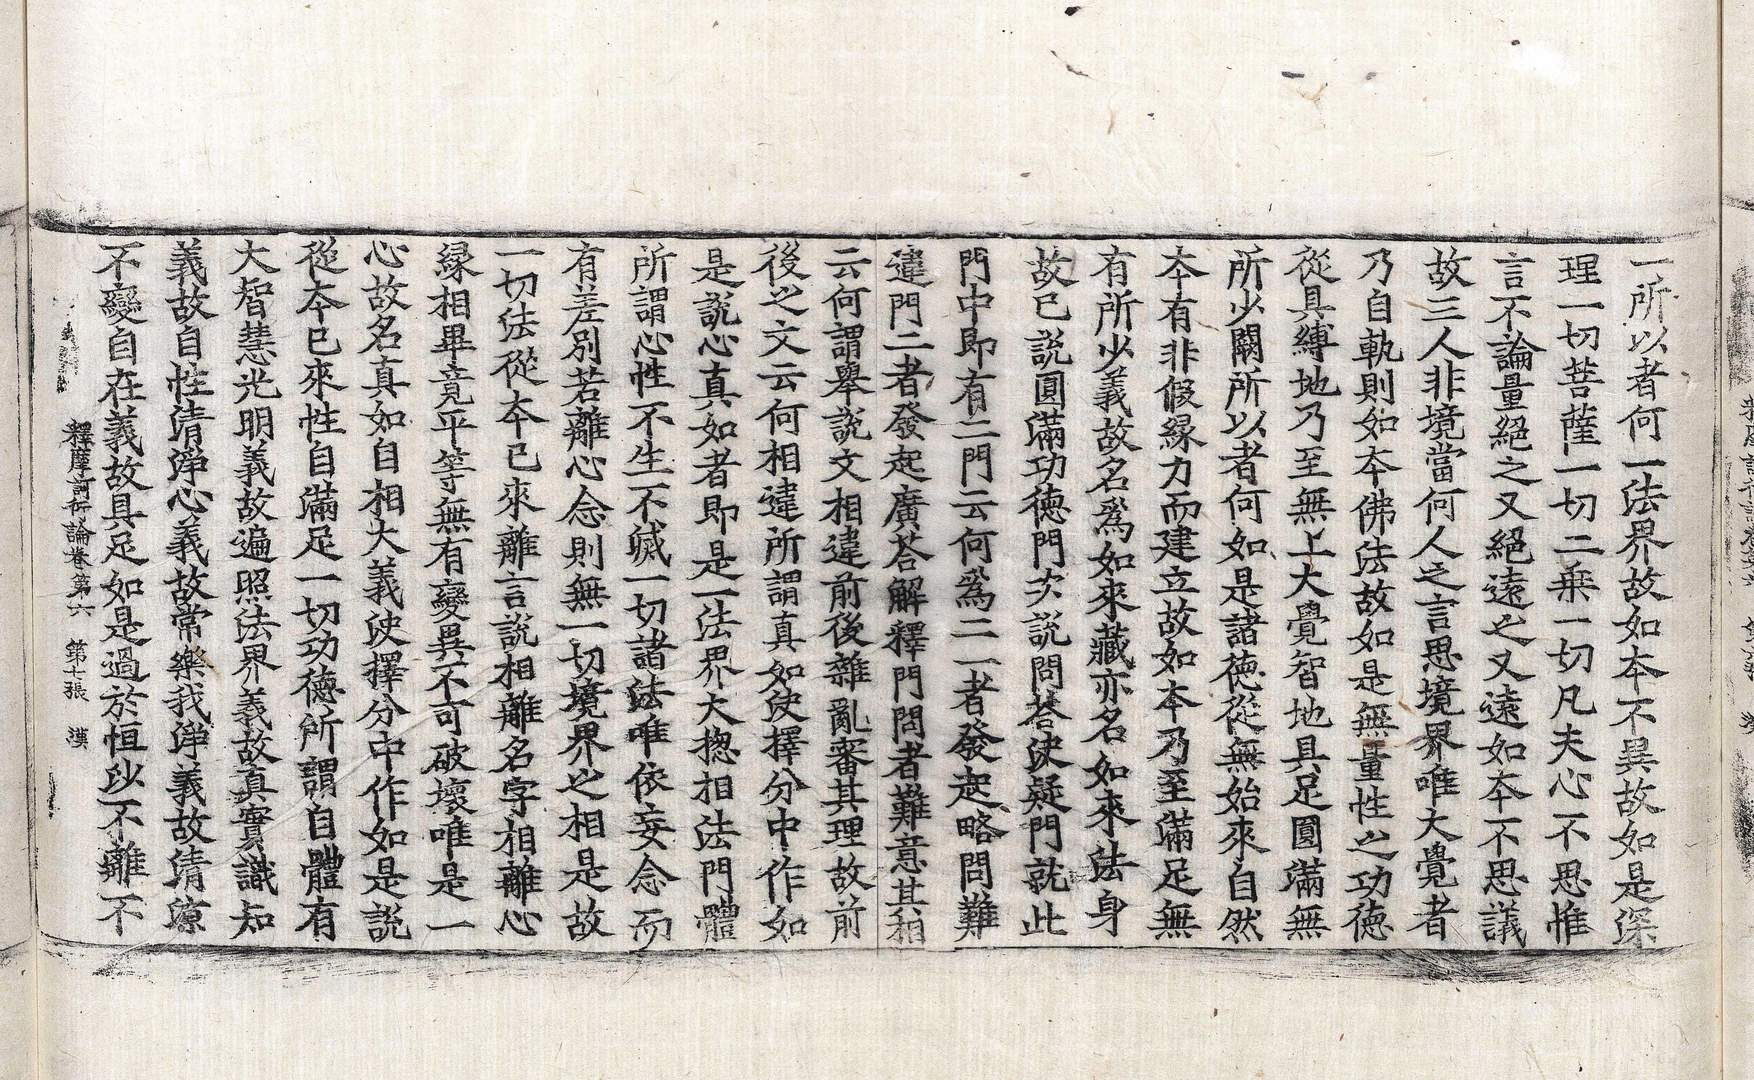 一所以者何一法界故如本不異故如是深
理一切菩薩一切二乘一切凡夫心不思惟
言不論量絕之又絕遠之又遠如本不思議
故三人非境當何人之言思境界唯大覺者
乃自軌則如本佛法故如是無量性之功德
從具縛地乃至無上大覺智地具足圓滿無
所少闕所以者何如是諸德從無始來自然
本有非假緣力而建立故如本乃至滿足無
有所少義故名爲如來藏亦名如來法身
故已說圓滿功德門次說問荅決疑門就此
門中即有二門云何爲二一者發起略問難
違門二者發起廣荅解釋門問者難意其相
云何謂舉說文相違前後雜亂審其理故前
後之文云何相違所謂真如決擇分中作如
是說心真如者即是一法界大揔相法門體
所謂心性不生不滅一切諸法唯依妄念而
有差別若離心念則無一切境界之相是故
一切法從本已來離言說相離名字相離心
緣相畢竟平等無有變異不可破壞唯是一
心故名真如自相大義決擇分中作如是說
從本已來性自滿足一切功德所謂自體有
大智慧光明義故遍照法界義故真實識知
義故自性清淨心義故常樂我淨義故清涼
不變自在義故具足如是過於恒沙不離不
釋摩訶衍論卷第六 第七張 漢